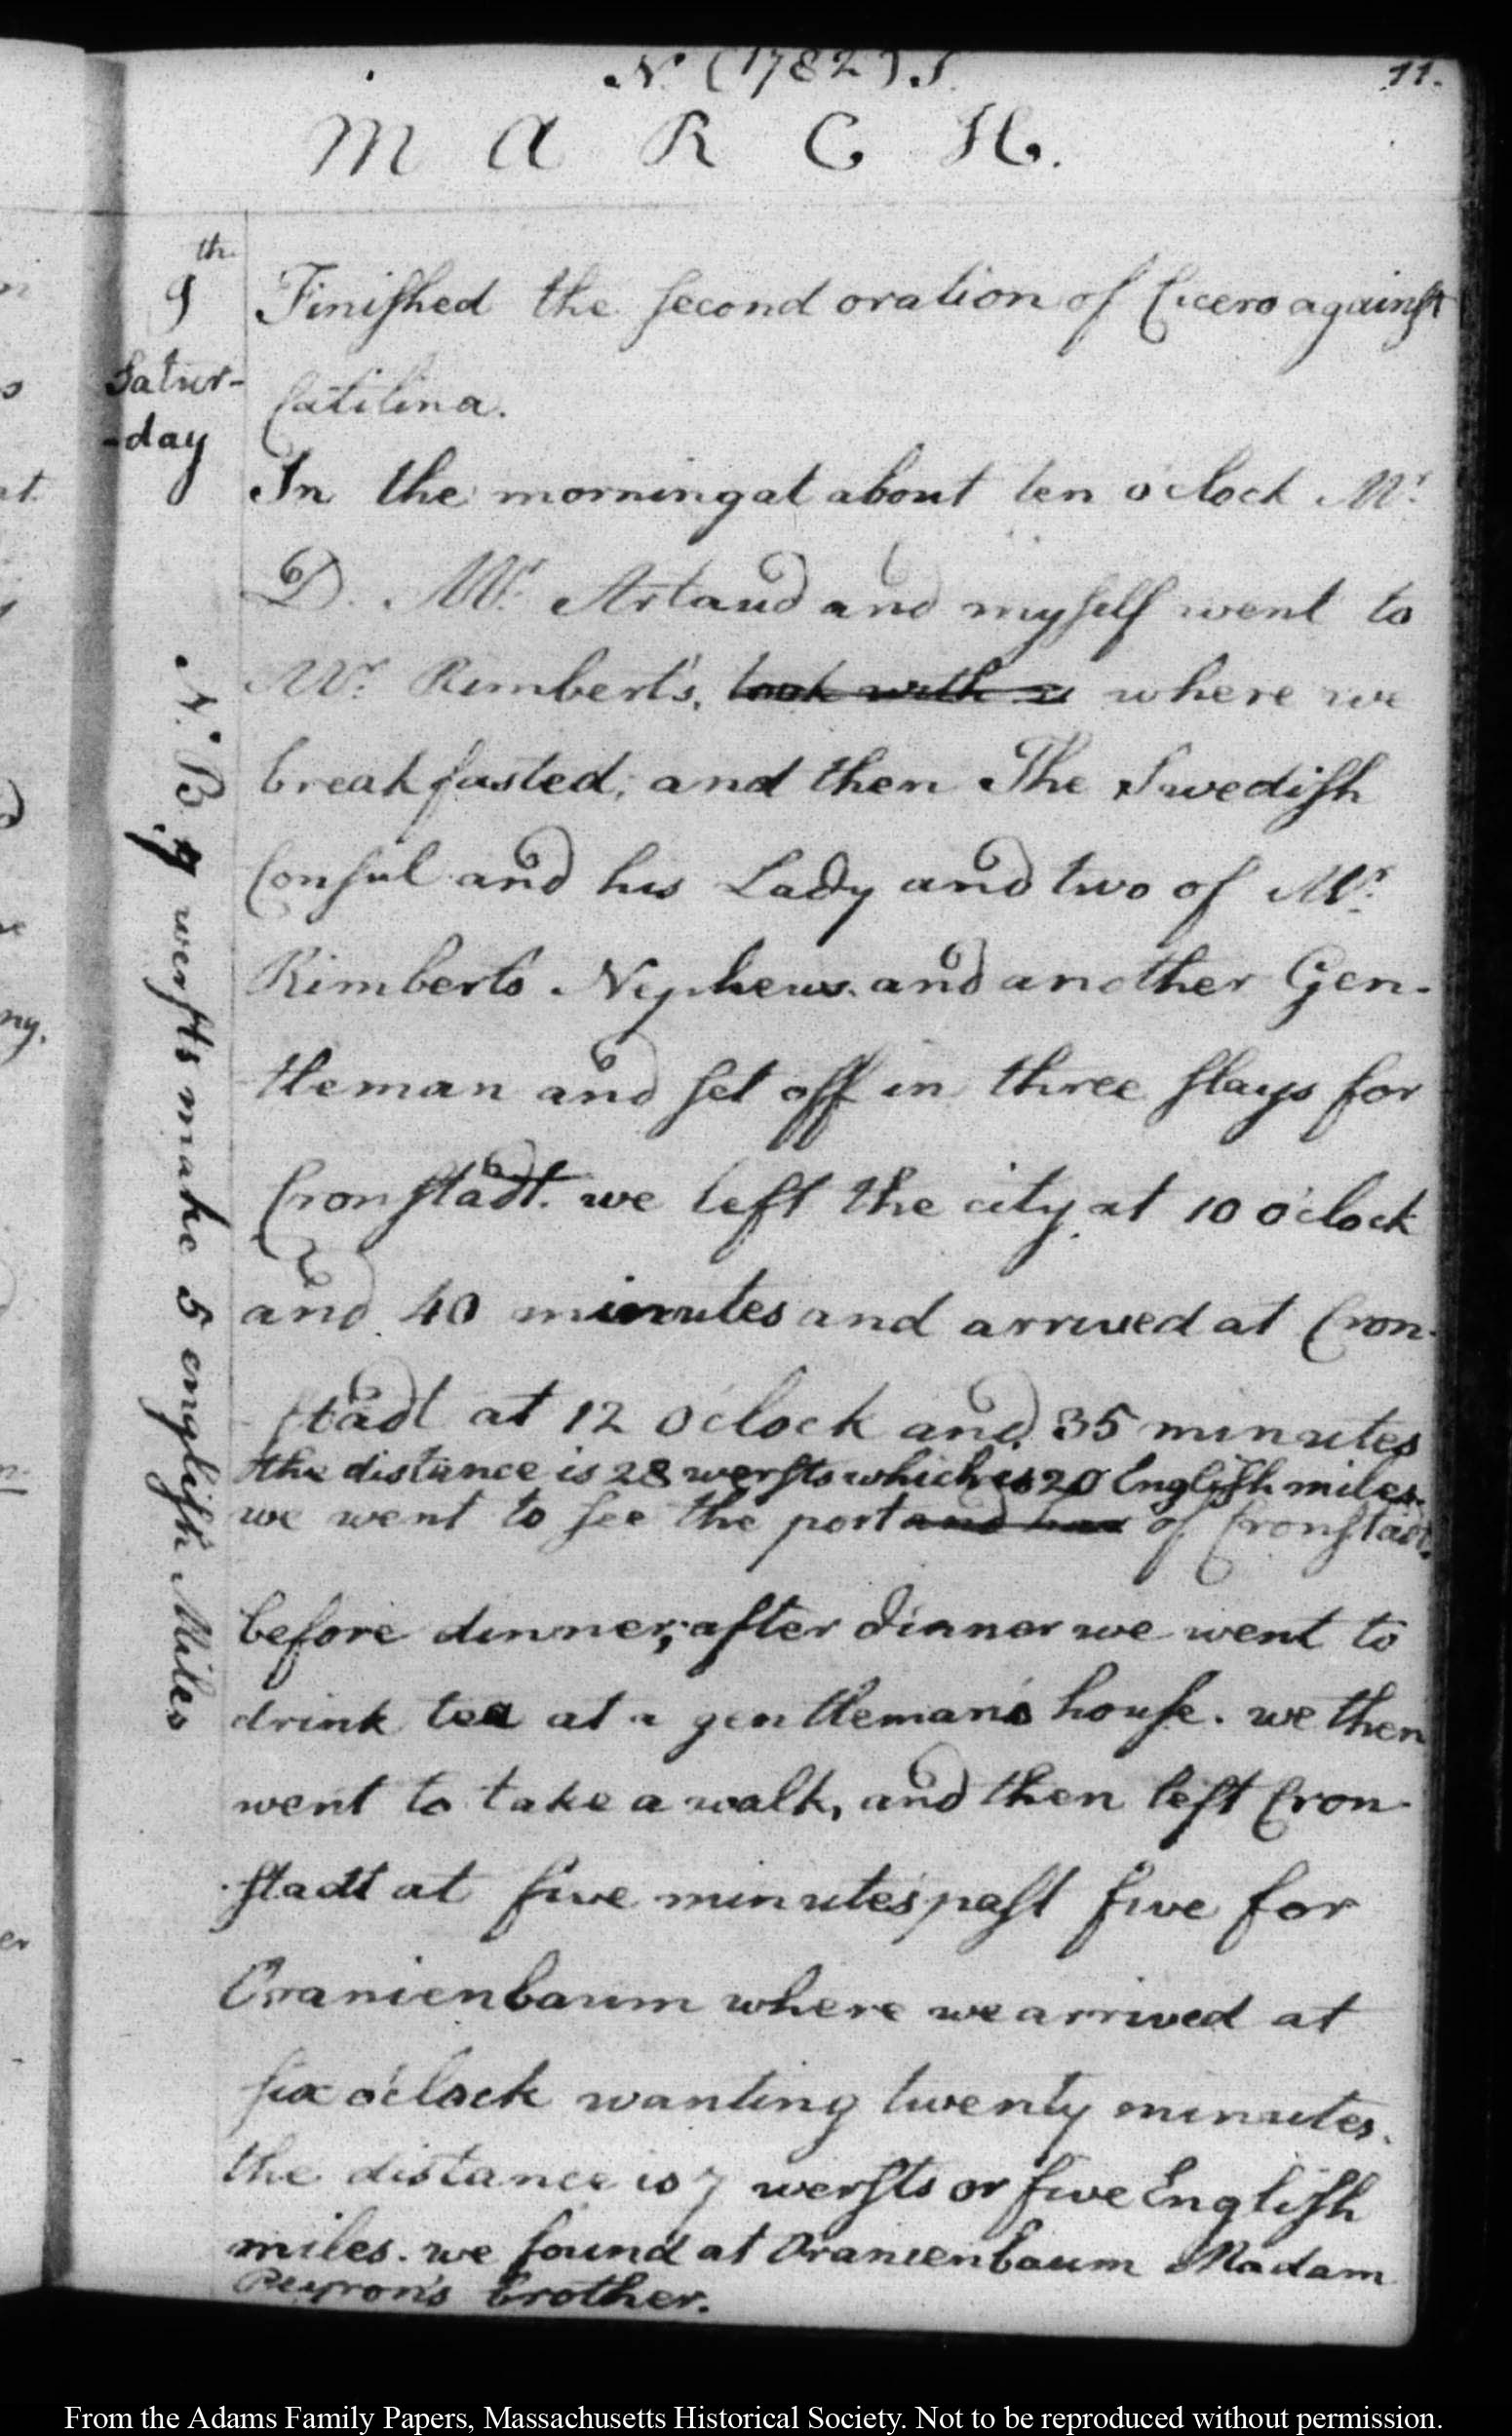 N. (1782) S.
11.
M A R C H.
9th
Satur-
-day
Finiſhed the ſecond oration of Cicero againſt
Catilina.
In the morning at about ten o'clock Mr.
D. Mr. Artaud and myſelf went to
Mr. Rimbert's, took with us where we
breakfasted, and then The Swediſh
Conſul and his Lady and two of Mr.
Rimberts Nephews and another Gen-
tleman and ſet off in three ſlays for
Cronſtadt. we left the city at 10 o'clock
and 40 minutes and arrived at Cron-
ſtadt at 12 o'clock and 35 minutes
the distance is 28 werſts which is 20 Engliſh miles.
we went to ſee the port and har of Cronſtadt.
before dinner; after dinner we went to
drink tea at a gentleman's houſe. we then
went to take a walk, and then left Cron-
ſtadt at five minutes paſt five for
Oranienbaum where we arrived at
ſix o'clock wanting twenty minutes.
the distance is 7 werſts or five Engliſh
miles. we found at Oranienbaum Madam
Peyron's brother.
N.B. 7 werſts make 5 engliſh Miles
From the Adams Family Papers, Massachusetts Historical Society. Not to be reproduced without permission.